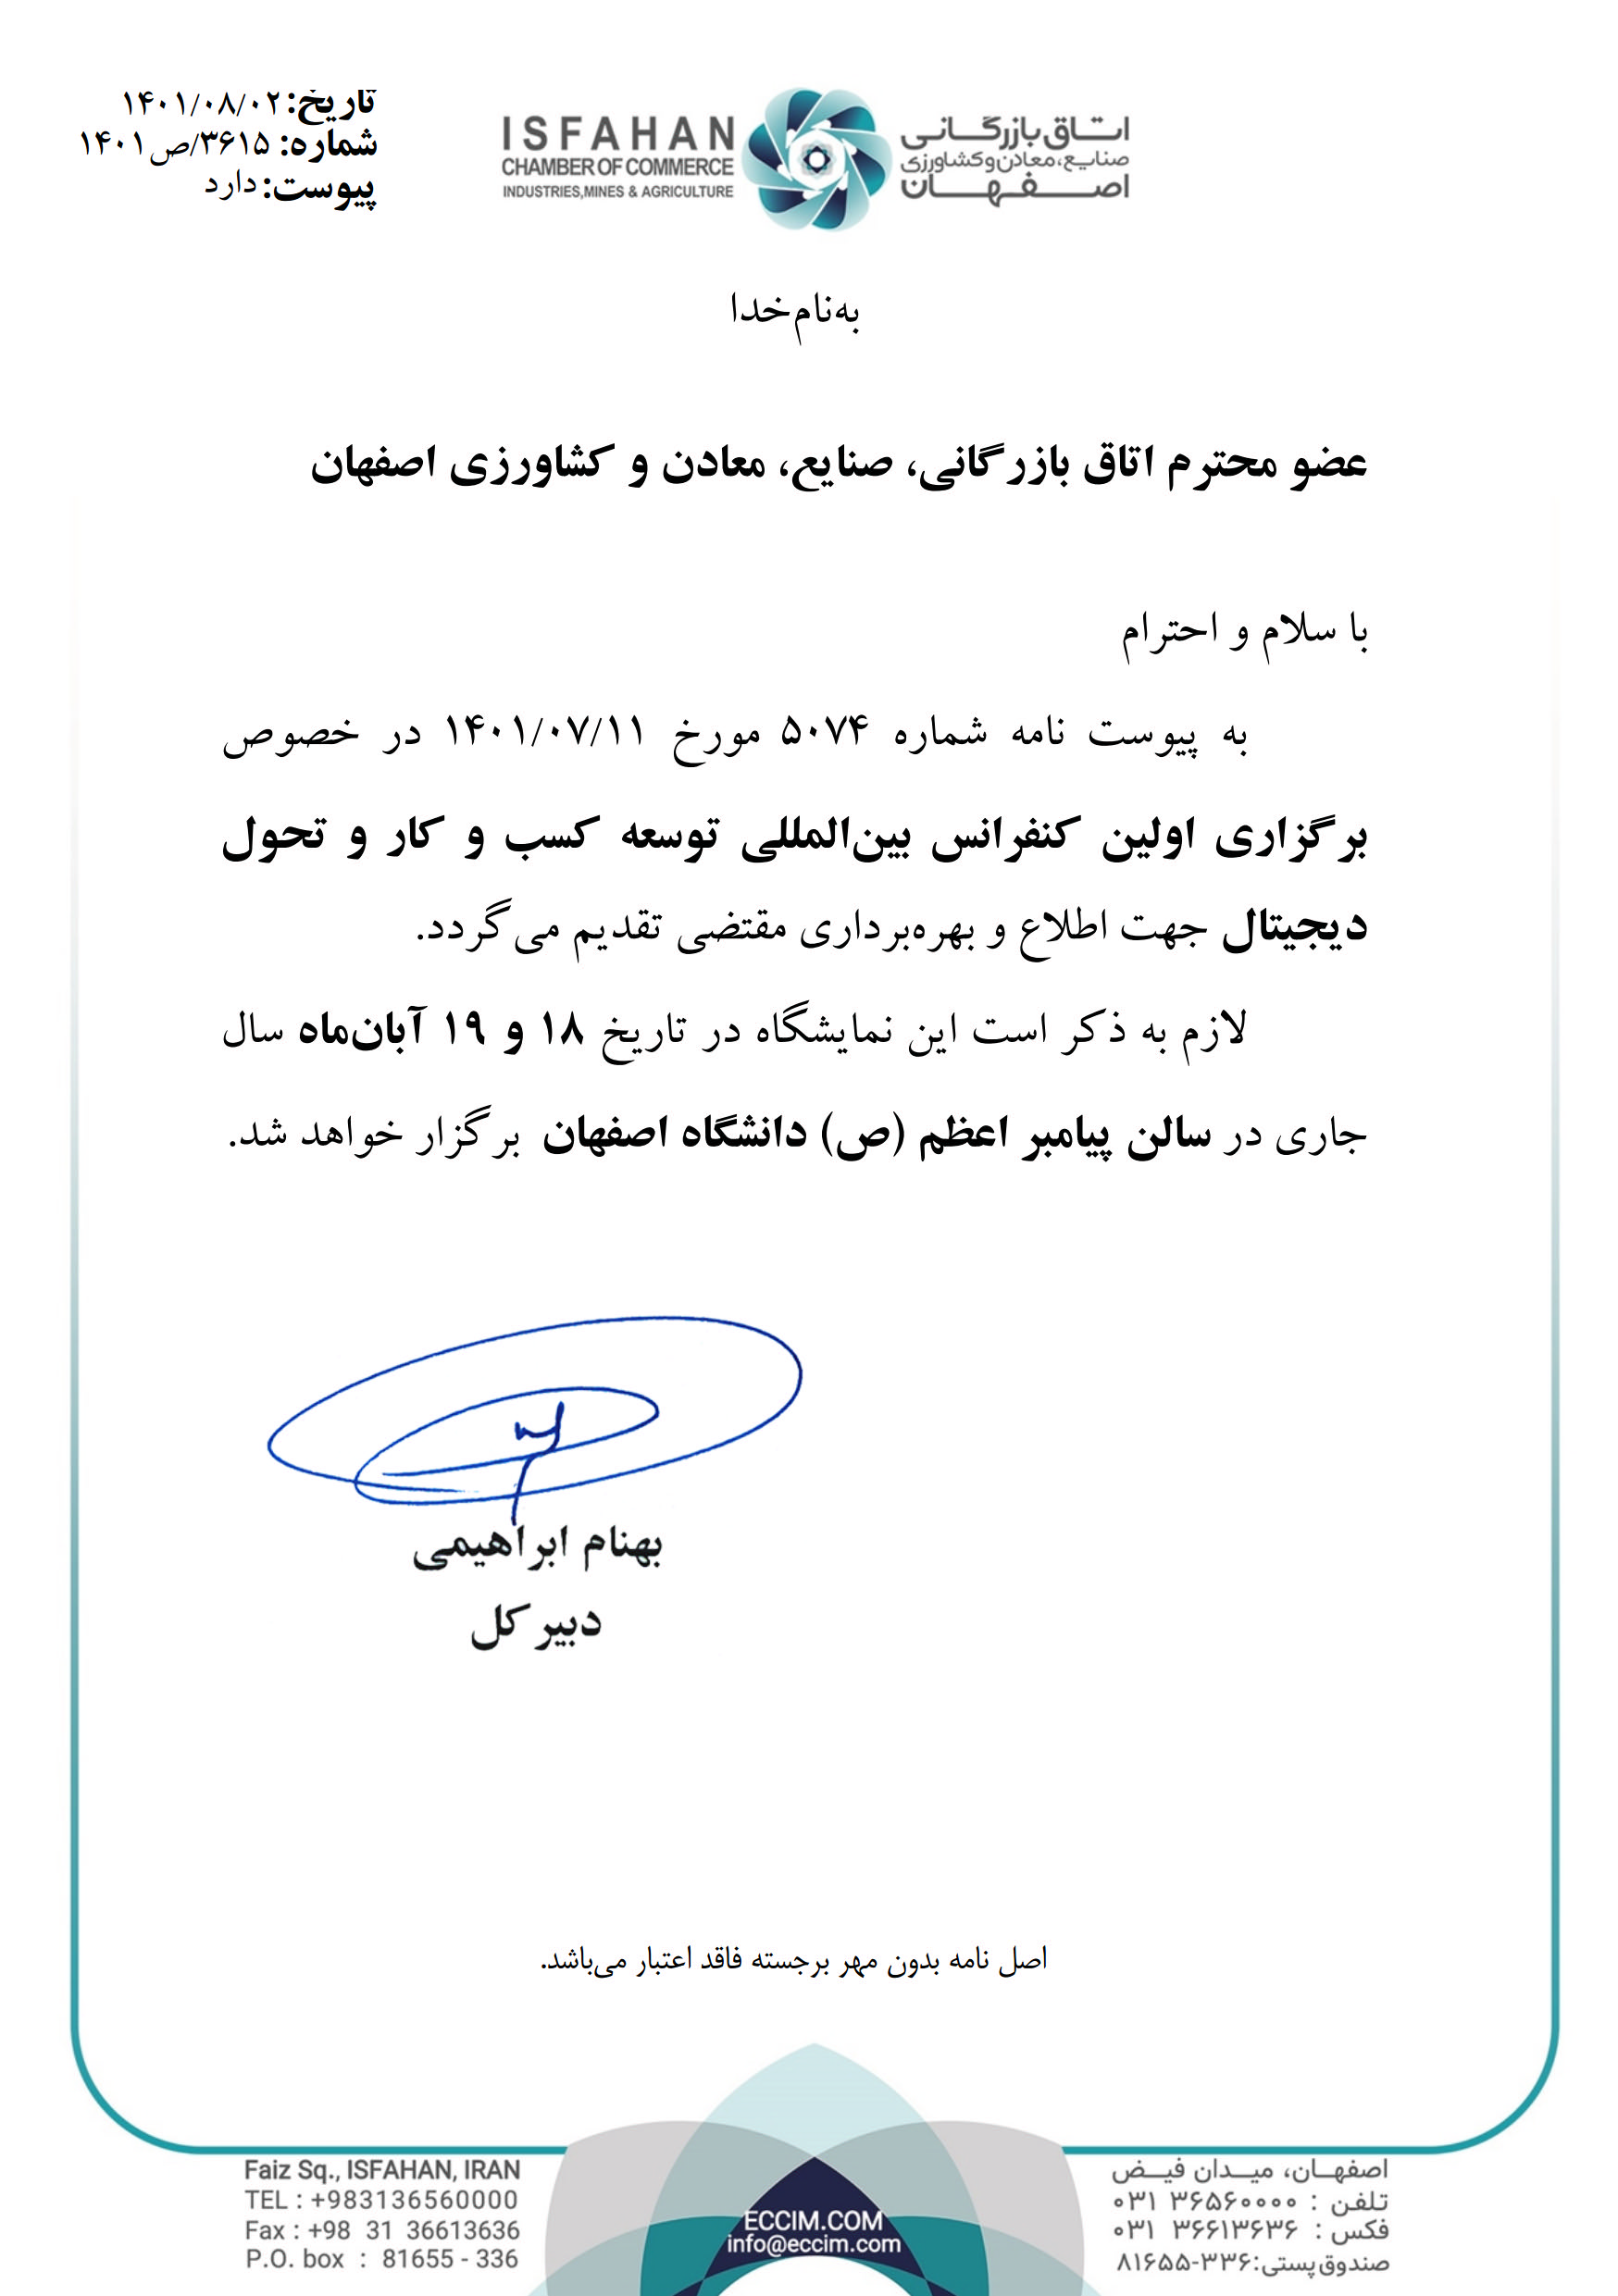 تاریخ: ۱۴۰۱/۰۸/۰۲
شماره: ۳۶۱۵/ص۱۴۰۱
پیوست: دارد
ISFAHAN
CHAMBER OF COMMERCE
INDUSTRIES,MINES & AGRICULTURE
اتـاق بازرگـانـی
صنایـع، معادن و کشاورزی
اصــفــهــان
به‌نام‌خدا
عضو محترم اتاق بازرگانی، صنایع، معادن و کشاورزی اصفهان
با سلام و احترام
به پیوست نامه شماره ۵۰۷۴ مورخ ۱۴۰۱/۰۷/۱۱ در خصوص
برگزاری اولین کنفرانس بین‌المللی توسعه کسب و کار و تحول
دیجیتال جهت اطلاع و بهره‌برداری مقتضی تقدیم می‌گردد.
لازم به ذکر است این نمایشگاه در تاریخ ۱۸ و ۱۹ آبان‌ماه سال
جاری در سالن پیامبر اعظم (ص) دانشگاه اصفهان برگزار خواهد شد.
بهنام ابراهیمی
دبیر کل
اصل نامه بدون مهر برجسته فاقد اعتبار می‌باشد.
اصفهـان، میـدان فیـض
تلفن : ۳۶۵۶۰۰۰۰ ۰۳۱
فکس : ۳۶۶۱۳۶۳۶ ۰۳۱
صندوق پستی: ۳۳۶-۸۱۶۵۵
ECCIM.COM
info@eccim.com
Faiz Sq., ISFAHAN, IRAN
TEL : +983136560000
Fax : +98 31 36613636
P.O. box : 81655 - 336